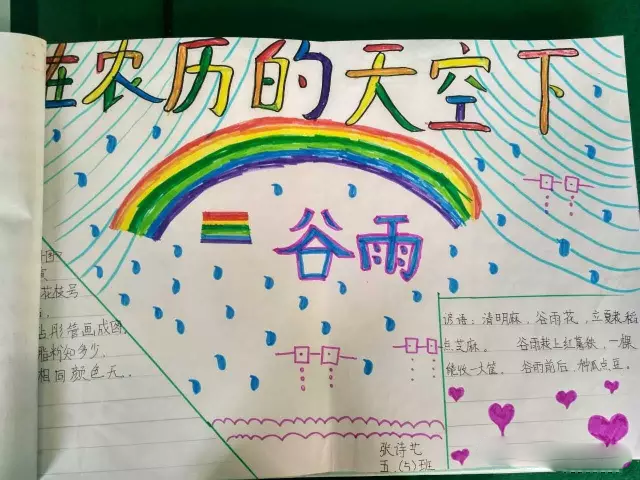 在农历的天空下
谷雨
花枝号
彤管画成图,
脂粉知多少.
相同颜色无.
谚语: 清明麻, 谷雨花, 立夏栽稻
点芝麻。 谷雨栽上红薯秧, 一棵
能收一大筐。 谷雨前后, 种瓜点豆.
张诗艺
五.(5)班